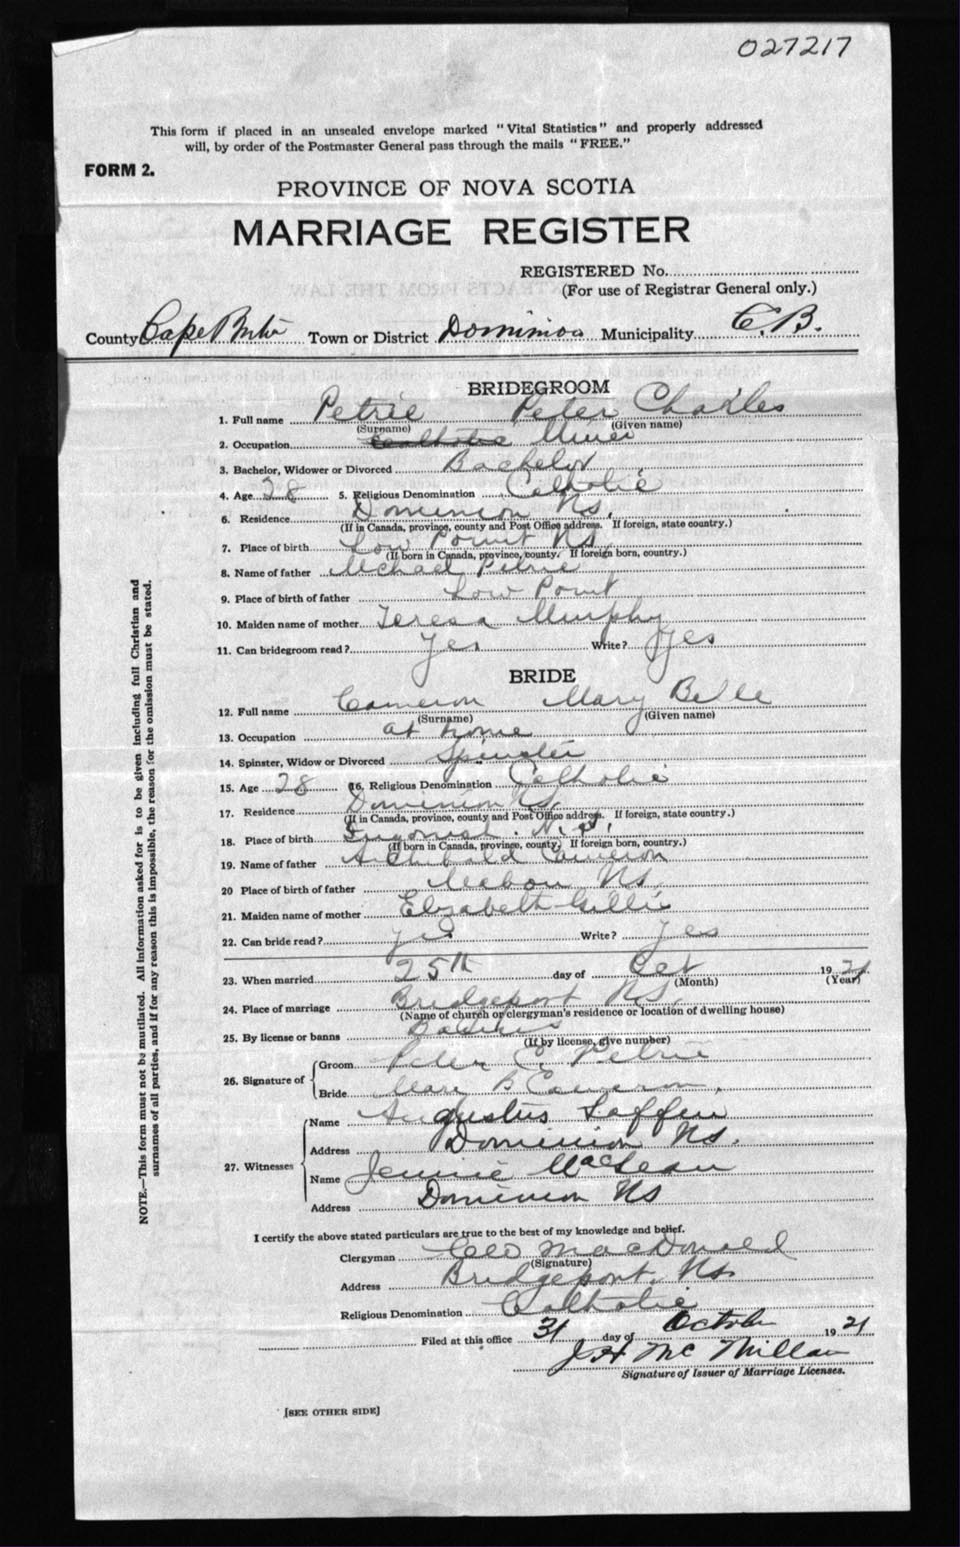 027217
This form if placed in an unsealed envelope marked "Vital Statistics" and properly addressed
will, by order of the Postmaster General pass through the mails "FREE."
FORM 2.
PROVINCE OF NOVA SCOTIA
MARRIAGE REGISTER
REGISTERED No.
(For use of Registrar General only.)
County Cape Breton Town or District Dominion Municipality C.B.
BRIDEGROOM
1. Full name Petrie Peter Charles
(Surname) (Given name)
2. Occupation Catholic Miner
3. Bachelor, Widower or Divorced Bachelor
4. Age 28 5. Religious Denomination Catholic
6. Residence Dominion N.S.
(If in Canada, province, county and Post Office address. If foreign, state country.)
7. Place of birth Low Point N.S.
(If born in Canada, province, county. If foreign born, country.)
8. Name of father Michael Petrie
9. Place of birth of father Low Point
10. Maiden name of mother Teresa Murphy
11. Can bridegroom read? Yes Write? Yes
BRIDE
12. Full name Cameron Mary Belle
(Surname) (Given name)
13. Occupation at home
14. Spinster, Widow or Divorced Spinster
15. Age 28 16. Religious Denomination Catholic
17. Residence Dominion N.S.
(If in Canada, province, county and Post Office address. If foreign, state country.)
18. Place of birth N.S.
(If born in Canada, province, county. If foreign born, country.)
19. Name of father Archibald Cameron
20 Place of birth of father Mabou N.S.
21. Maiden name of mother Elizabeth Gillis
22. Can bride read? Yes Write? Yes
23. When married 25th day of Oct 1921
(Month) (Year)
24. Place of marriage Bridgeport N.S.
(Name of church or clergyman's residence or location of dwelling house)
25. By license or banns
(If by license, give number)
26. Signature of Groom Peter C Petrie
Bride Mary B Cameron
27. Witnesses Name Augustus Laffin
Address Dominion N.S.
Name Jennie MacLean
Address Dominion NS
I certify the above stated particulars are true to the best of my knowledge and belief.
Clergyman Geo MacDonald
(Signature)
Address Bridgeport, N.S.
Religious Denomination Catholic
Filed at this office 31 day of October 1921
J H McMillan
Signature of Issuer of Marriage Licenses.
[SEE OTHER SIDE]
NOTE.—This form must not be mutilated. All information asked for is to be given including full Christian and
surnames of all parties, and if for any reason this is impossible, the reason for the omission must be stated.